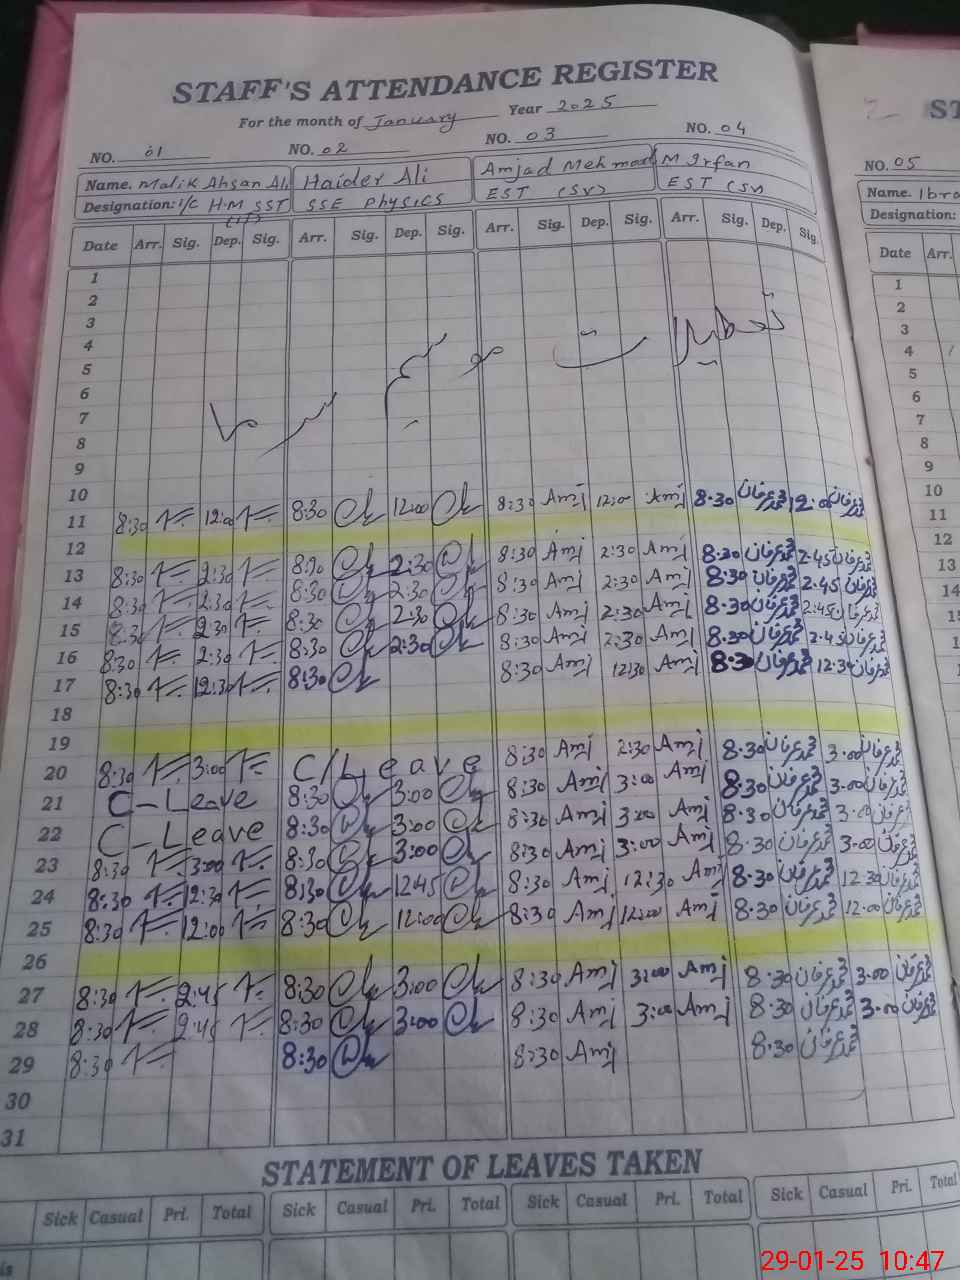 STAFF'S ATTENDANCE REGISTER
For the month of January Year 2025
NO. 01 NO. 02 NO. 03 NO. 04
Name. Malik Ahsan Ali Haider Ali Amjad Mehmood M Irfan
Designation: I/C H.M SST (IT) SSE Physics EST (SV) EST (SV)
Date Arr. Sig. Dep. Sig. Arr. Sig. Dep. Sig. Arr. Sig. Dep. Sig. Arr. Sig. Dep. Sig.
1
2
3
4
تعطیلات موسم سرما
5
6
7
8
9
10
11 8:30 12:00 8:30 12:00 8:30 Amj 12:00 Amj 8.30 محمد عرفان 12.00 محمد عرفان
12
13 8:30 2:30 8:30 2:30 8:30 Amj 2:30 Amj 8.30 محمد عرفان 2.45 محمد عرفان
14 8:30 2:30 8:30 2:30 8:30 Amj 2:30 Amj 8.30 محمد عرفان 2.45 محمد عرفان
15 8:30 2:30 8:30 2:30 8:30 Amj 2:30 Amj 8.30 محمد عرفان 2:45 محمد عرفان
16 8:30 2:30 8:30 2:30 8:30 Amj 2:30 Amj 8.30 محمد عرفان 2.45 محمد عرفان
17 8:30 12:30 8:30 8:30 Amj 12:30 Amj 8.30 محمد عرفان 12.30 محمد عرفان
18
19
20 8:30 3:00 C/Leave 8:30 Amj 2:30 Amj 8.30 محمد عرفان 3.00 محمد عرفان
21 C-Leave 8:30 3:00 8:30 Amj 3:00 Amj 8.30 محمد عرفان 3.00 محمد عرفان
22 C-Leave 8:30 3:00 8:30 Amj 3:00 Amj 8.30 محمد عرفان 3.00 محمد عرفان
23 8:30 3:00 8:30 3:00 8:30 Amj 3:00 Amj 8.30 محمد عرفان 3.00 محمد عرفان
24 8:30 12:30 8:30 12:45 8:30 Amj 12:30 Amj 8.30 محمد عرفان 12.30 محمد عرفان
25 8:30 12:00 8:30 12:00 8:30 Amj 12:00 Amj 8.30 محمد عرفان 12.00 محمد عرفان
26
27 8:30 2:45 8:30 3:00 8:30 Amj 3:00 Amj 8.30 محمد عرفان 3.00 محمد عرفان
28 8:30 2:45 8:30 3:00 8:30 Amj 3:00 Amj 8.30 محمد عرفان 3.00 محمد عرفان
29 8:30 8:30 8:30 Amj 8.30 محمد عرفان
30
31
STATEMENT OF LEAVES TAKEN
Sick Casual Pri. Total Sick Casual Pri. Total Sick Casual Pri. Total Sick Casual Pri. Total
ST
NO. 05
Name. Ibra
Designation:
Date Arr.
1
2
3
4
5
6
7
8
9
10
11
12
13
14
29-01-25 10:47